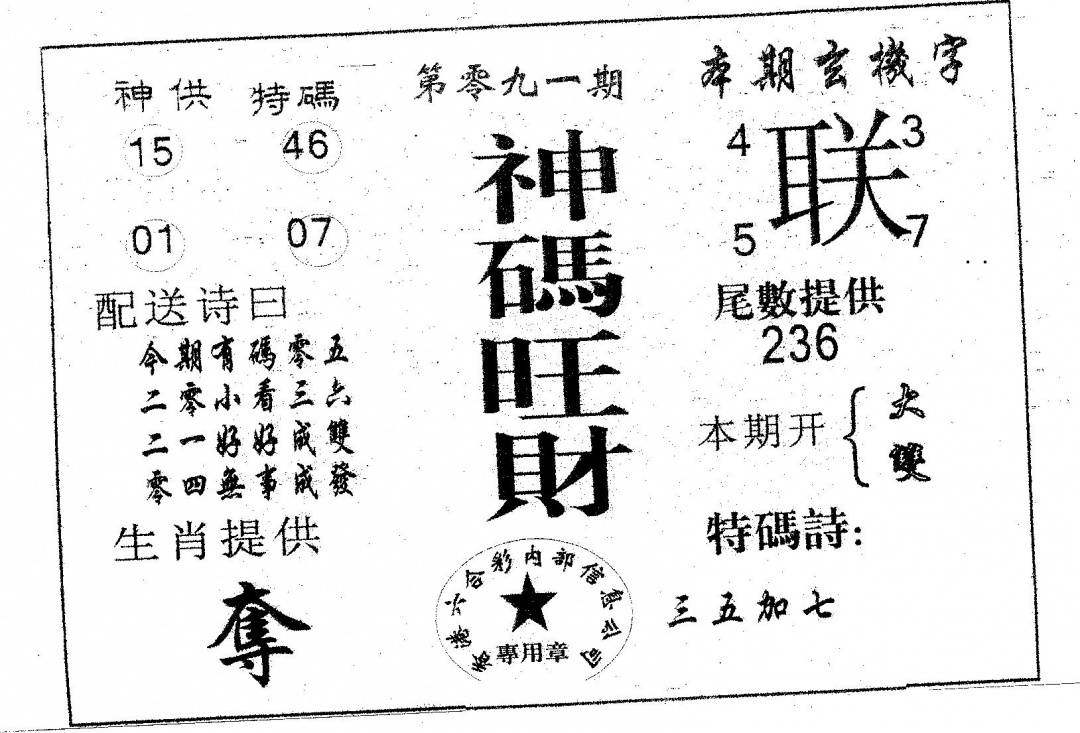 第零九一期
神碼旺財
神供 特碼
15 46
01 07
配送诗曰
今期有碼零五
二零小看三六
二一好好成雙
零四無事成發
生肖提供
奪
香港六合彩内部信息公司
專用章
本期玄機字
4 联 3
5 7
尾數提供
236
本期开 大
雙
特碼詩:
三五加七